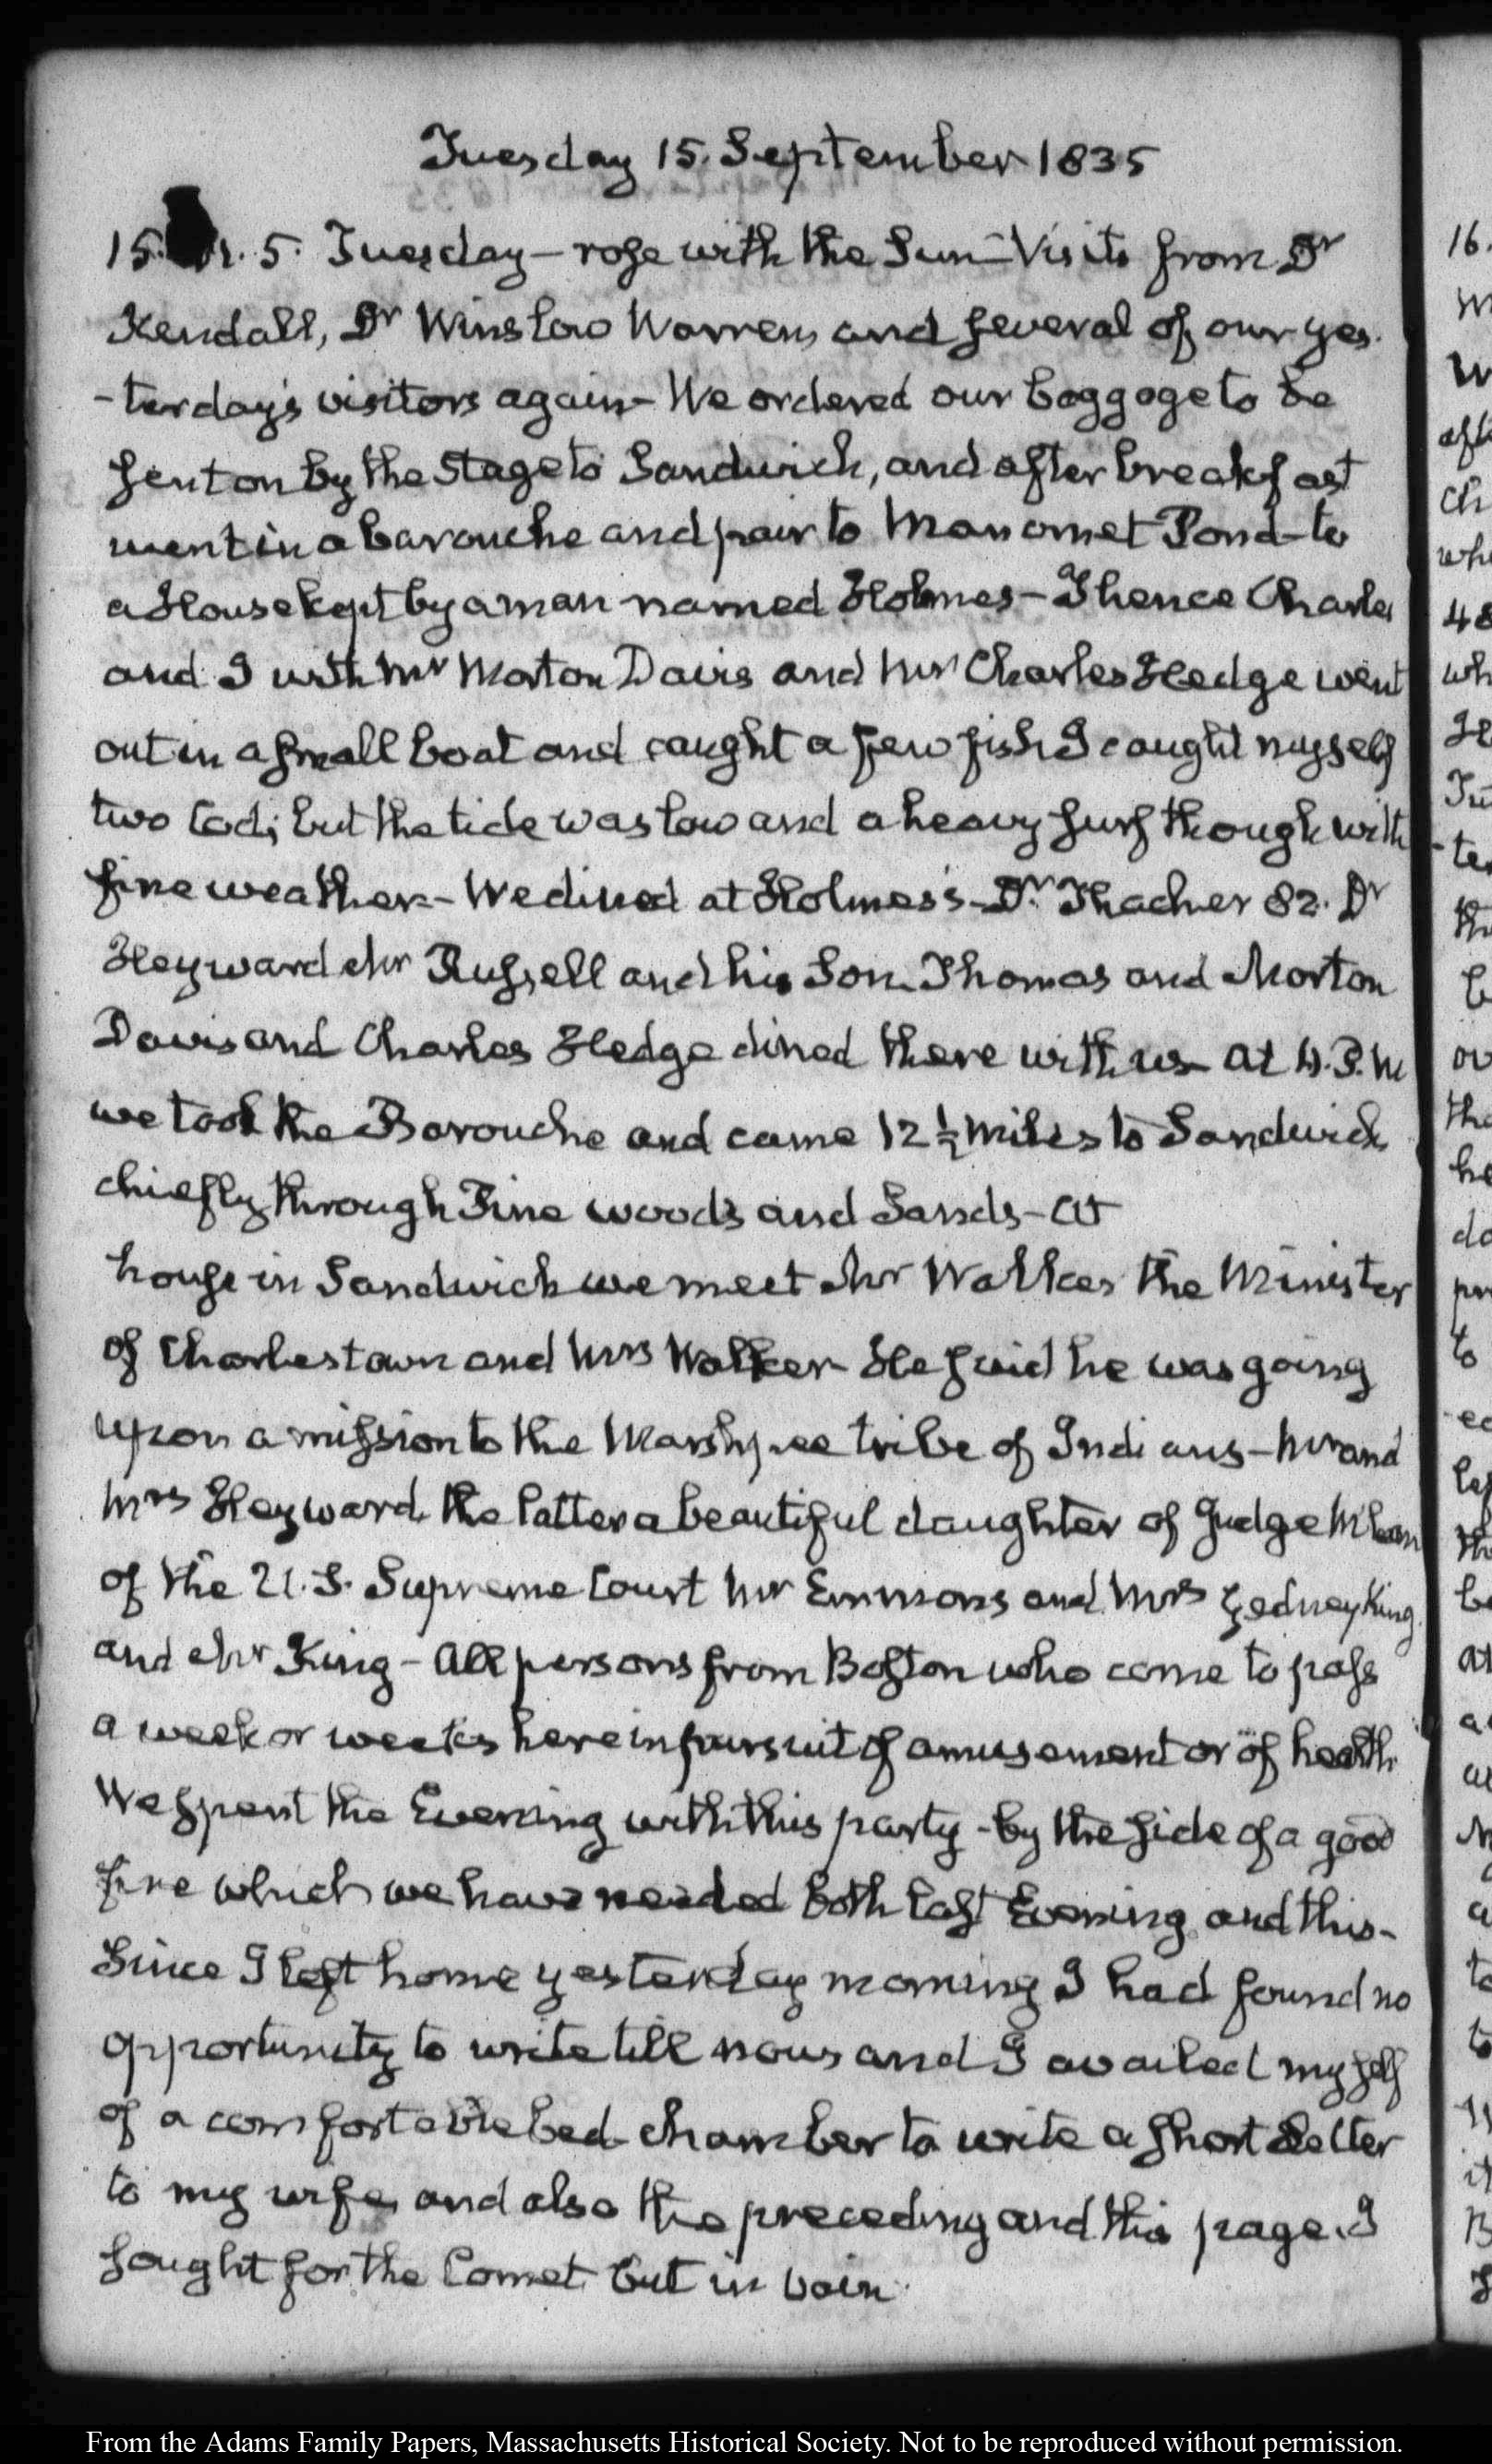 Tuesday 15. September 1835
15. 5. Tuesday — rose with the Sun — Visits from Dr
Kendall, Dr Winslow Warren, and several of our yes-
-terday's visitors again — We ordered our baggage to be
sent on by the Stage to Sandwich, and after breakfast
went in a barouche and pair to Manomet Pond — to
a House kept by a man named Holmes — Thence Charles
and I with Mr Morton Davis and Mr Charles Hedge went
out in a small boat and caught a few fish I caught myself
two Cod; but the tide was low and a heavy surf though with
fine weather — We dined at Holmes's — Dr Thacher 82. Dr
Heyward Mr Russell and his Son Thomas and Morton
Davis and Charles Hedge dined there with us — At 4. P.M
we took the Barouche and came 12 ½ miles to Sandwich
chiefly through Pine woods and Sands — At
house in Sandwich we meet Mr Walker the Minister
of Charlestown and Mrs Walker — He said he was going
upon a mission to the Marshpee tribe of Indians — Mr and
Mrs Heyward, the latter a beautiful daughter of Judge McLean
of the U. S. Supreme Court Mr Emmons and Mrs Gedney King
and Mr King — All persons from Boston who come to pass
a week or weeks here in pursuit of amusement or of health
We spent the Evening with this party — by the side of a good
fire which we have needed both last Evening and this —
Since I left home yesterday morning I had found no
opportunity to write till now and I availed myself
of a comfortable bed-chamber to write a short Letter
to my wife, and also the preceding and this page. I
sought for the Comet but in vain
From the Adams Family Papers, Massachusetts Historical Society. Not to be reproduced without permission.